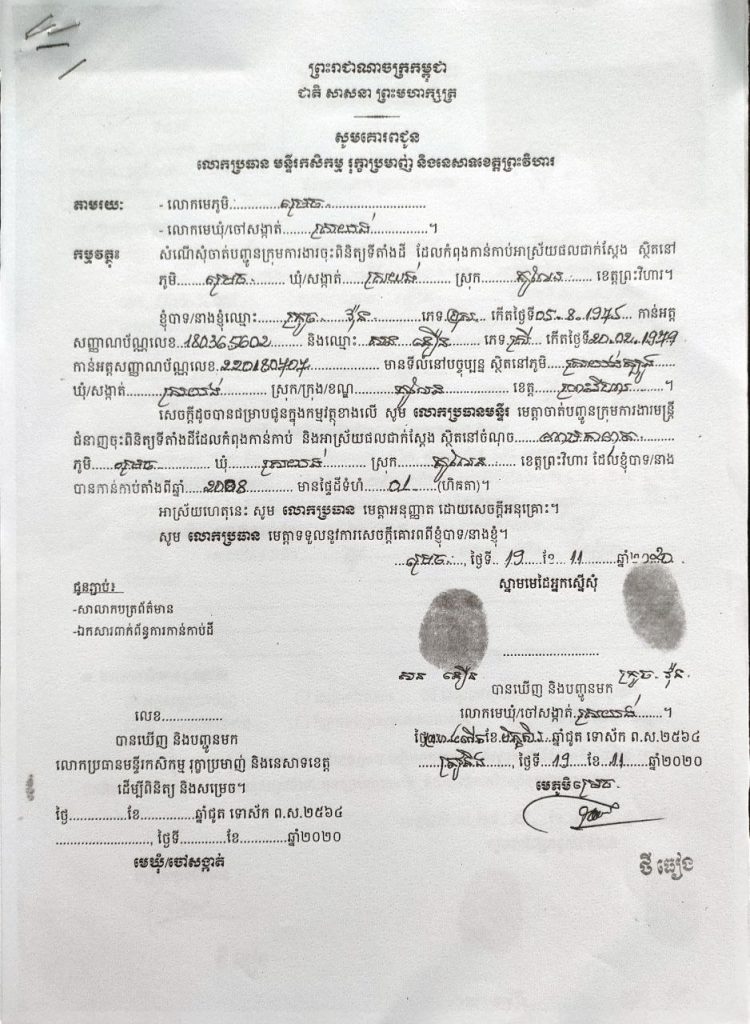 ព្រះរាជាណាចក្រកម្ពុជា
ជាតិ សាសនា ព្រះមហាក្សត្រ
សូមគោរពជូន
លោកប្រធាន មន្ទីរកសិកម្ម រុក្ខាប្រមាញ់ និងនេសាទខេត្តព្រះវិហារ
តាមរយៈ - លោកមេភូមិ.: ម្រេច
- លោកមេឃុំ/ចៅសង្កាត់ ស្រយង់ ។
កម្មវត្ថុ៖ សំណើសុំចាត់បញ្ជូនក្រុមការងារចុះពិនិត្យទីតាំងដី ដែលកំពុងកាន់កាប់អាស្រ័យផលជាក់ស្តែង ស្ថិតនៅ
ភូមិ ម្រេច ឃុំ/សង្កាត់ ស្រយង់ ស្រុក គូលែន ខេត្តព្រះវិហារ។
ខ្ញុំបាទ/នាងខ្ញុំឈ្មោះ ក្រូច វ៉ុន ភេទ ប្រុស កើតថ្ងៃទី 05.8.1975 កាន់អត្ត
សញ្ញាណប័ណ្ណលេខ 180365602 និងឈ្មោះ សាន ភឿន ភេទ ស្រី កើតថ្ងៃទី 20.02.1979
កាន់អត្តសញ្ញាណប័ណ្ណលេខ 220180707 មានទីលំនៅបច្ចុប្បន្ន ស្ថិតនៅភូមិ ស្រយង់ត្បូង
ឃុំ/សង្កាត់ ស្រយង់ ស្រុក/ក្រុង/ខណ្ឌ គូលែន ខេត្ត ព្រះវិហារ ។
សេចក្តីដូចបានជម្រាបជូនក្នុងកម្មវត្ថុខាងលើ សូម លោកប្រធានមន្ទីរ មេត្តាចាត់បញ្ជូនក្រុមការងារមន្ត្រី
ជំនាញចុះពិនិត្យទីតាំងដីដែលកំពុងកាន់កាប់ និងអាស្រ័យផលជាក់ស្តែង ស្ថិតនៅចំណុច
ភូមិ ម្រេច ឃុំ ស្រយង់ ស្រុក គូលែន ខេត្តព្រះវិហារ ដែលខ្ញុំបាទ/នាង
បានកាន់កាប់តាំងពីឆ្នាំ 2008 មានផ្ទៃដីទំហំ 01 (ហិកតា)។
អាស្រ័យហេតុនេះ សូម លោកប្រធាន មេត្តាអនុញ្ញាត ដោយសេចក្តីអនុគ្រោះ។
សូម លោកប្រធាន មេត្តាទទួលនូវការសេចក្តីគោរពពីខ្ញុំបាទ/នាងខ្ញុំ។
ម្រេច, ថ្ងៃទី 19 ខែ 11 ឆ្នាំ២០២០
ស្នាមមេដៃអ្នកស្នើសុំ
ជូនភ្ជាប់៖
-សាលាកបត្រព័ត៌មាន
-ឯកសារពាក់ព័ន្ធការកាន់កាប់ដី
សាន ភឿន ក្រូច វ៉ុន
បានឃើញ និងបញ្ជូនមក
លោកមេឃុំ/ចៅសង្កាត់ ស្រយង់ ។
ខែ មិគសិរ ឆ្នាំជូត ទោស័ក ព.ស.២៥៦៤
ថ្ងៃទី 19 ខែ 11 ឆ្នាំ២០២០
មេភូមិម្រេច
ថី ធៀង
លេខ.................
បានឃើញ និងបញ្ជូនមក
លោកប្រធានមន្ទីរកសិកម្ម រុក្ខាប្រមាញ់ និងនេសាទខេត្ត
ដើម្បីពិនិត្យ និងសម្រេច។
ថ្ងៃ................ខែ...............ឆ្នាំជូត ទោស័ក ព.ស.២៥៦៤
........................., ថ្ងៃទី............ខែ.............ឆ្នាំ២០២០
មេឃុំ/ចៅសង្កាត់